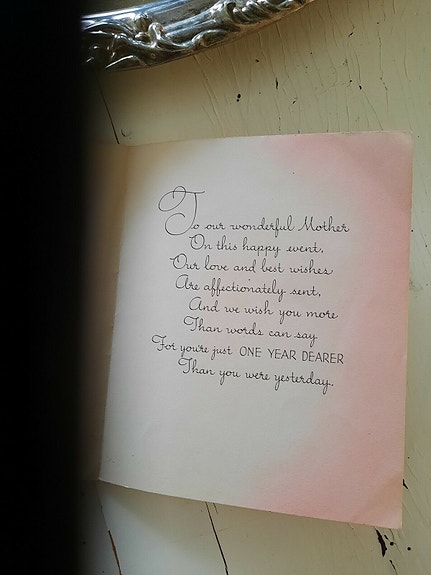 To our wonderful Mother
On this happy event,
Our love and best wishes
Are affectionately sent,
And we wish you more
Than words can say
For you're just ONE YEAR DEARER
Than you were yesterday.